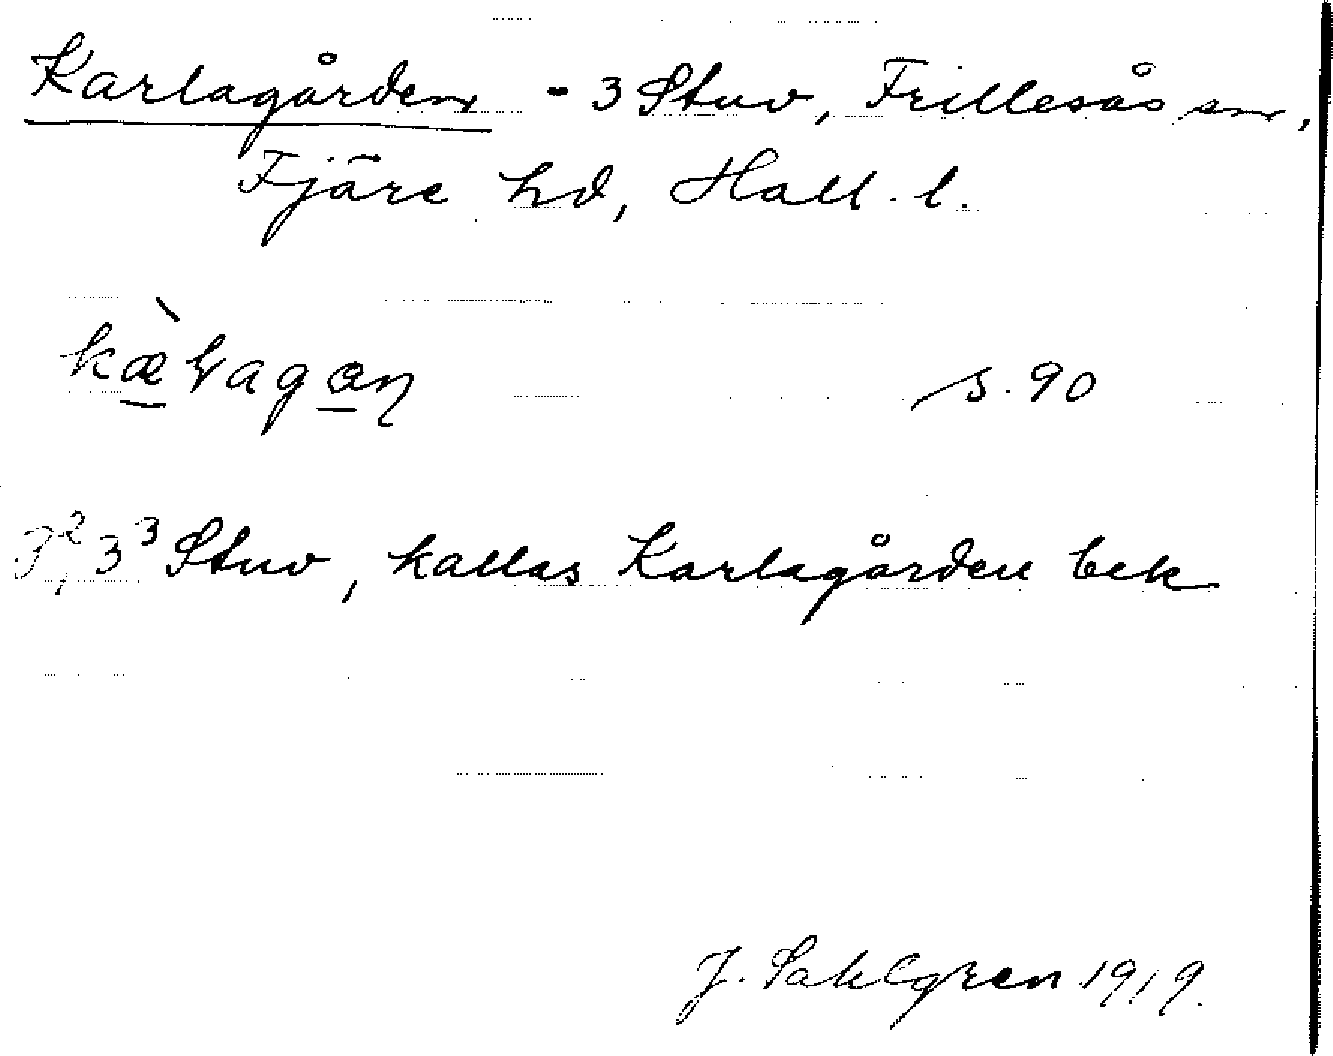 Karlagården = 3 Stuv, Frillesås sn,
Fjäre hd, Hall. l.
s. 90
3², 3³ Stuv, kallas Karlagården bek
J. Sahlgren 1919.